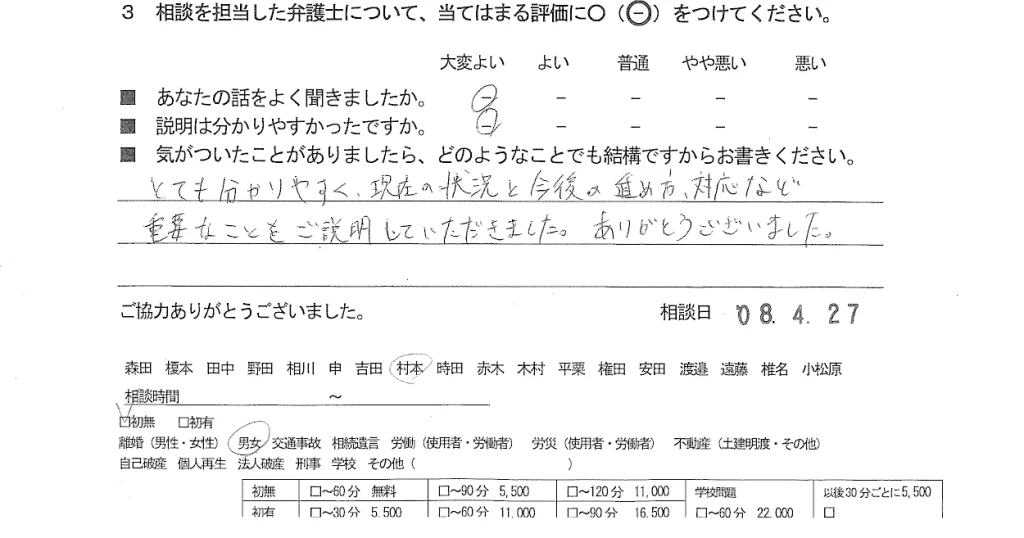 3 相談を担当した弁護士について、当てはまる評価に○（㊀）をつけてください。
大変よい よい 普通 やや悪い 悪い
■ あなたの話をよく聞きましたか。 － － － － －
■ 説明は分かりやすかったですか。 － － － － －
■ 気がついたことがありましたら、どのようなことでも結構ですからお書きください。
とても分かりやすく、現在の状況と今後の進め方、対応など
重要なことをご説明していただきました。ありがとうございました。
ご協力ありがとうございました。 相談日 '08. 4. 27
森田 榎本 田中 野田 相川 申 吉田 村本 時田 赤木 木村 平栗 権田 安田 渡邉 遠藤 椎名 小松原
相談時間 ～
☑初無 □初有
離婚（男性・女性） 男女 交通事故 相続遺言 労働（使用者・労働者） 労災（使用者・労働者） 不動産（土建明渡・その他）
自己破産 個人再生 法人破産 刑事 学校 その他（ ）
初無 □～60分 無料 □～90分 5,500 □～120分 11,000 学校問題 以後30分ごとに5,500
初有 □～30分 5,500 □～60分 11,000 □～90分 16,500 □～60分 22,000 □